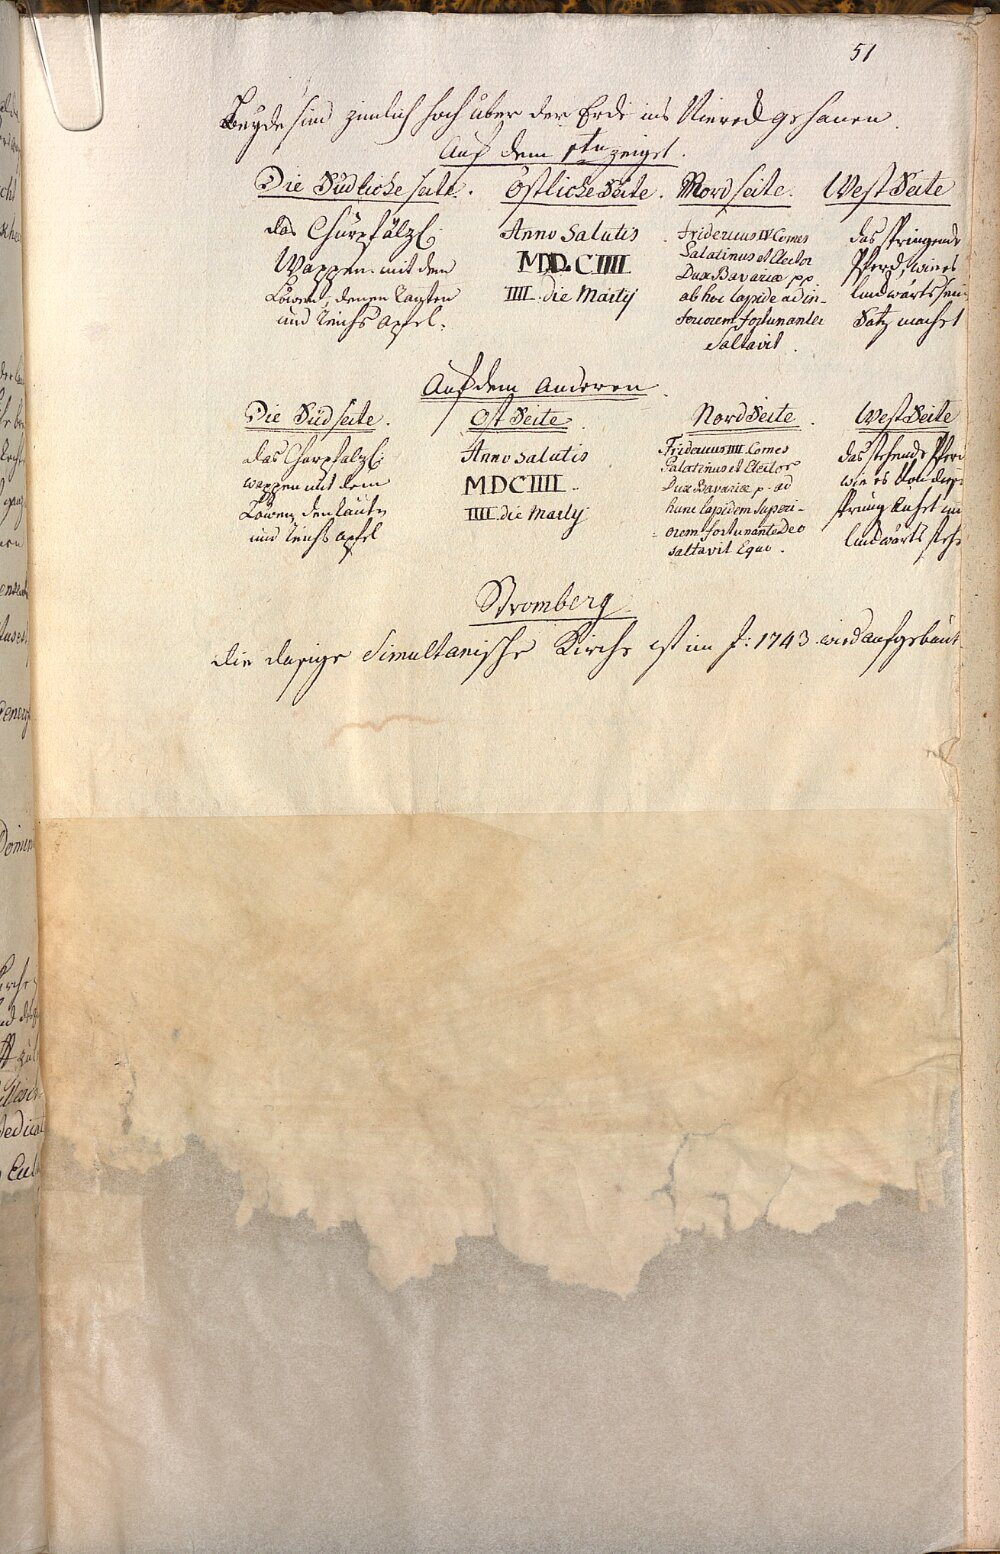 51
Beyde sind zimlich hoch über der Erde ins Viereck gehauen.
Auf dem 1ten zeiget.
Die Südliche seite.
das Churpfälzl:
Wappen mit den
Löwen, denen Rauten
und Reichs apfel.
Östliche Seite.
Anno Salutis
MDCIIII
IIII die Martij
Nord seite.
Fridericus IV Comes
Palatinus et Elector
Dux Bavariæ pp
ab hoc lapide ad in-
feriorem fortunanter
Saltavit.
West Seite
das springende
Pferd, wie es
landwärts sein
Satz machet
Auf dem Anderen.
Die Süd seite.
das Churpfälzl:
wappen mit dem
Löwen, den Rauten
und Reichs apfel
Ost Seite.
Anno salutis
MDCIIII.
IIII die Martij
Nord Seite.
Fridericus IIII. Comes
Palatinus et Elector
Dux Bavariæ p. ad
hunc lapidem superi-
orem fortunante Deo
saltavit Equo.
West Seite
das stehende Pferd
wie es von dem
sprung
landwärts steh
Stromberg
die dasige Simultanische Kirche ist im J: 1743 wied aufgebaut